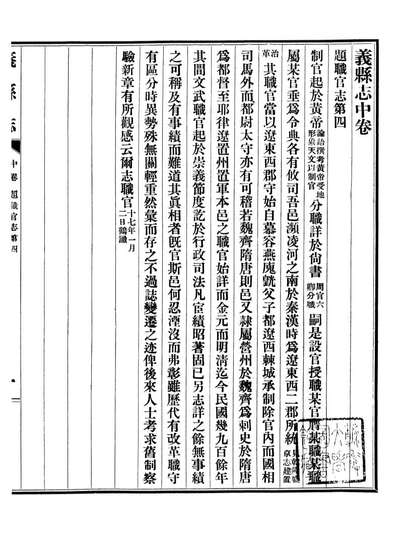 義縣志中卷
題職官志第四
制官起於黃帝論語撰考黃帝受地形象天文以制官分職詳於尙書周官六卿分職嗣是設官授職某官膺某職某職
屬某官垂爲令典各有攸司吾邑瀕凌河之南於秦漢時爲遼東西二郡所統
治革其職官當以遼東西郡守始自慕容燕廆皝父子都遼西棘城承制除官內而國相
司馬外而都尉太守亦有可稽若魏齊隋唐則邑又隷屬營州於魏齊爲刺史於隋唐
爲都督至耶律遼置州置軍本邑之職官始詳而金元而明清迄今民國幾九百餘年
其間文武職官起於崇義節度訖於行政司法凡宦績昭著固已另志詳之餘無事績
之可稱及有事績而難道其眞相者旣官斯邑何忍湮沒而弗彰雖歷代有改革職守
有區分時異勢殊無關輕重然彙而存之不過誌變遷之迹俾後來人士考求舊制察
驗新章有所觀感云爾志職官十七年一月二日鶴識
義縣志
中卷 題職官志第四
一